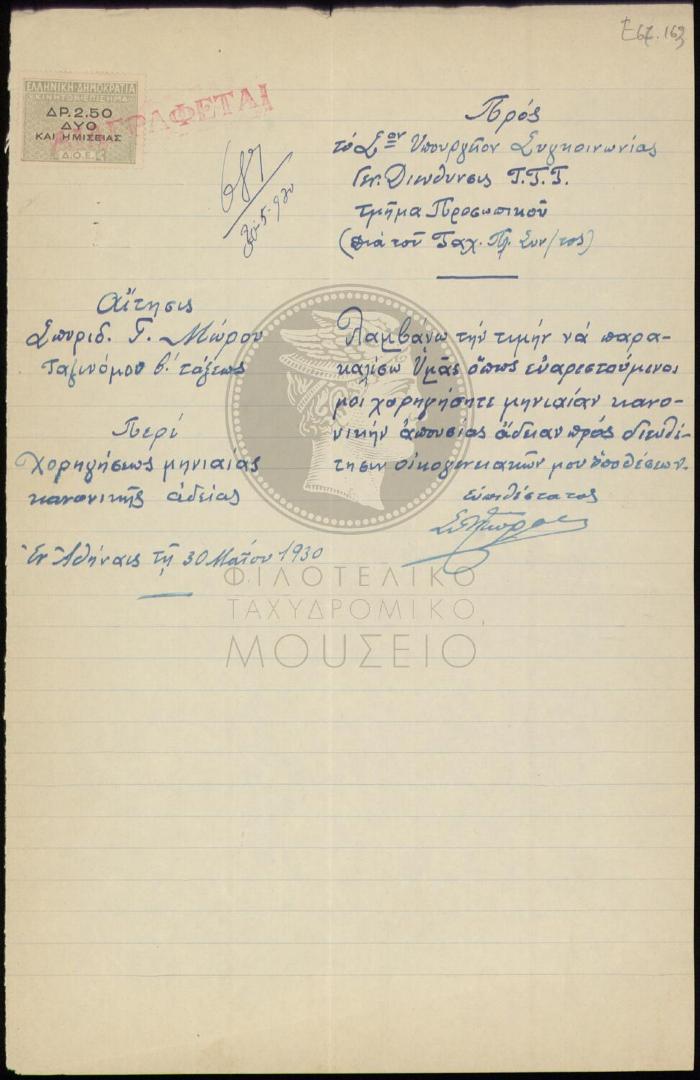 Εύζ. 163
ΕΛΛΗΝΙΚΗ ΔΗΜΟΚΡΑΤΙΑ
ΚΙΝΗΤΟΝ ΕΠΙΣΗΜΑ
ΔΡ. 2.50
ΔΥΟ
ΚΑΙ ΗΜΙΣΕΙΑΣ
Δ.Ο.Ε.
30-5-930
Πρός
τό Σ^ον Υπουργεῖον Συγκοινωνίας
Γεν. Διεύθυνσις Τ.Τ.Τ.
τμῆμα Προσωπικοῦ
(διά τοῦ Ταχ. Πρ. Συν/τος)
Αἴτησις
Σπυριδ. Γ. Μώρου
Ταξινόμου β' τάξεως
Περί
χορηγήσεως μηνιαίας
κανονικῆς ἀδείας
Ἐν Ἀθήναις τῇ 30 Μαΐου 1930
Λαμβάνω τήν τιμήν νά παρα-
καλέσω Ὑμᾶς ὅπως εὐαρεστούμενος
μοι χορηγήσητε μηνιαίαν κανο-
νικήν ἀπουσίας ἄδειαν πρός διευθέ-
τησιν οἰκογενειακῶν μου ὑποθέσεων.
εὐπειθέστατος
Σπ Μώρος
ΦΙΛΟΤΕΛΙΚΟ
ΤΑΧΥΔΡΟΜΙΚΟ
ΜΟΥΣΕΙΟ